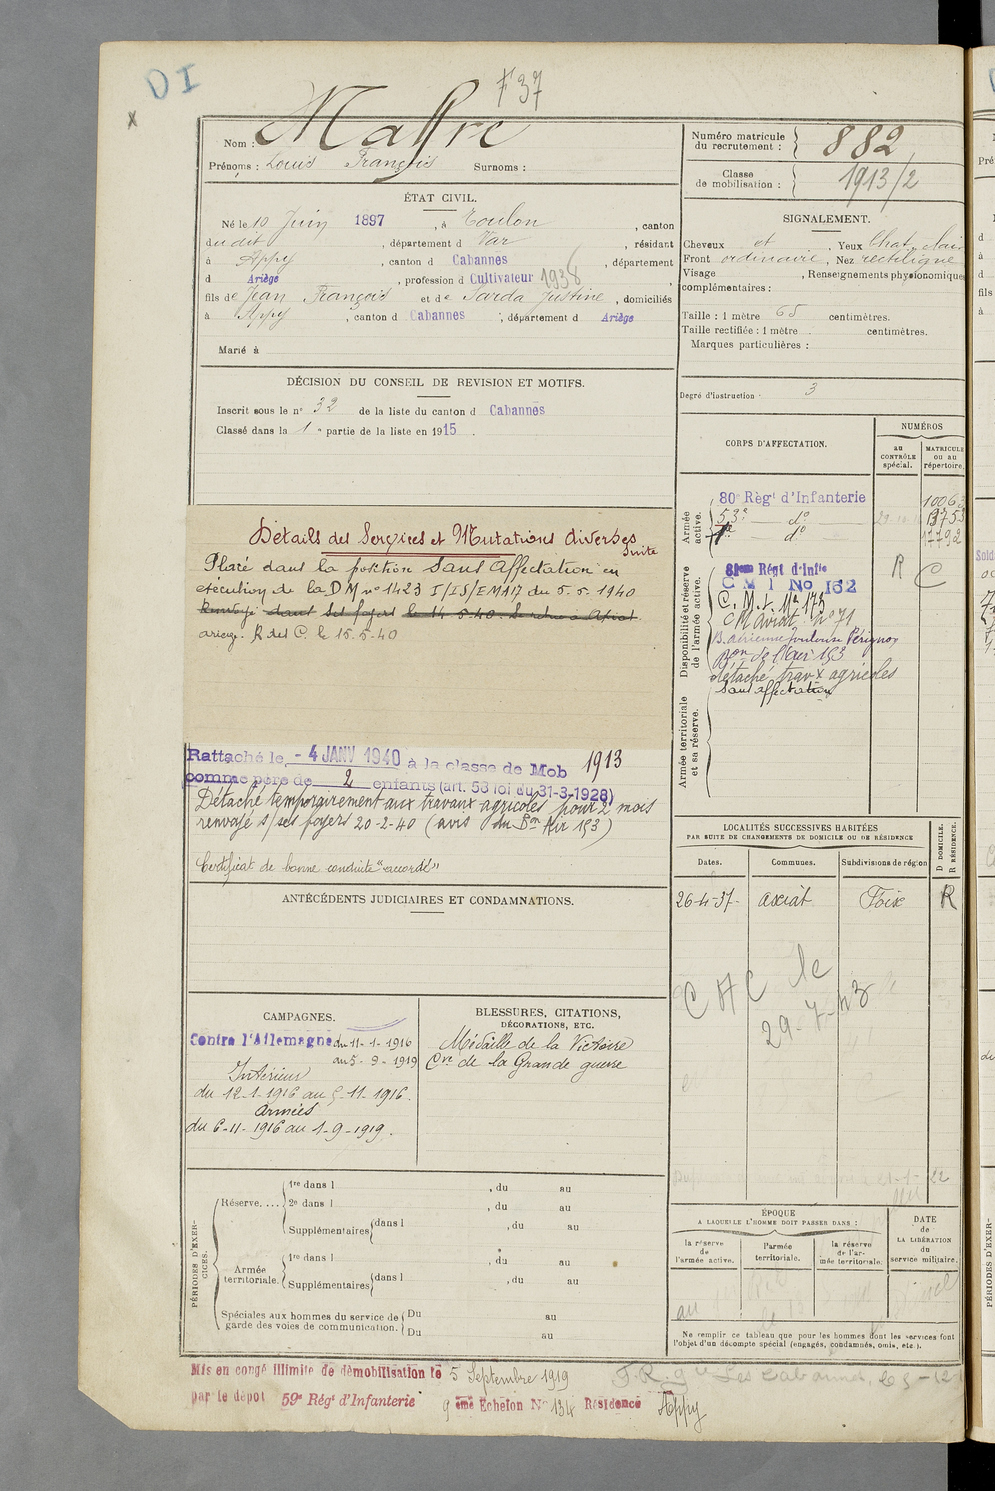 DI
F37
x
Nom : Maffre
Prénoms : Louis François Surnoms :
Numéro matricule du recrutement : 882
Classe de mobilisation : 1913/2
ÉTAT CIVIL.
Né le 10 Juin 1897, à Toulon, canton
dudit, département d Var, résidant
à Appy, canton d Cabannes, département
d Ariège, profession d Cultivateur 1938
fils de Jean François et de Sarda Justine, domiciliés
à Appy, canton d Cabannes, département d Ariège
Marié à
SIGNALEMENT.
Cheveux , Yeux Chat. clair
Front ordinaire, Nez rectiligne
Visage , Renseignements physionomiques
complémentaires :
Taille : 1 mètre 65 centimètres.
Taille rectifiée : 1 mètre centimètres.
Marques particulières :
Degré d'instruction 3
DÉCISION DU CONSEIL DE REVISION ET MOTIFS.
Inscrit sous le n° 32 de la liste du canton d Cabannes
Classé dans la 1e partie de la liste en 1915.
Détails des Services et Mutations diverses
suite
Placé dans la position Sans Affectation en
exécution de la DM n° 1423 I/IS/EMA 17 du 5.5.1940
Renvoyé dans ses foyers le 14-5-40. Se retire à Axiat
ariège. R del C. le 15-5-40
Rattaché le - 4 JANV 1940 à la classe de Mob 1913
comme père de 2 enfants (art. 58 loi du 31-3-1928)
Détaché temporairement aux travaux agricoles pour 2 mois
renvoyé s/ses foyers 20-2-40 (avis du Bon Air 193)
Certificat de bonne conduite "accordé"
CORPS D'AFFECTATION.
NUMÉROS
au CONTRÔLE spécial.
MATRICULE ou au répertoire.
Armée active.
80e Régt d'Infanterie
53e — d°
— d°
Disponibilité et réserve de l'armée active.
81em Régt d'Infie
C M I No 162
C. M. I. n° 173
R C
B. aérienne Toulouse Pérignon
Bon de l'Air 193
détaché trav.x agricoles
Sans affectation
Armée territoriale et sa réserve.
LOCALITÉS SUCCESSIVES HABITÉES
PAR SUITE DE CHANGEMENTS DE DOMICILE OU DE RÉSIDENCE
D DOMICILE. R RÉSIDENCE.
Dates. Communes. Subdivisions de région
26-4-37- axiat Foix R
C A C le
29-7-43
ANTÉCÉDENTS JUDICIAIRES ET CONDAMNATIONS.
CAMPAGNES.
Contre l'Allemagne du 11-1-1916
au 5-9-1919
Intérieur
du 12-1-1916 au 5-11-1916.
armées
du 6-11-1916 au 1-9-1919.
BLESSURES, CITATIONS,
DÉCORATIONS, ETC.
Médaille de la Victoire
Cve de la Grande guerre
PÉRIODES D'EXERCICES.
Réserve....
1re dans l , du au
2e dans l , du au
Supplémentaires dans l , du au
Armée territoriale.
1re dans l , du au
Supplémentaires dans l , du au
Spéciales aux hommes du service de garde des voies de communication.
Du au
Du au
ÉPOQUE
A LAQUELLE L'HOMME DOIT PASSER DANS :
la réserve de l'armée active.
l'armée territoriale.
la réserve de l'armée territoriale.
DATE de LA LIBÉRATION du service militaire.
Ne remplir ce tableau que pour les hommes dont les services font
l'objet d'un décompte spécial (engagés, condamnés, omis, etc.).
Mis en congé illimité de démobilisation le 5 Septembre 1919
par le dépôt 59e Régt d'Infanterie 9 ème Echelon N° 134 Résidence Appy